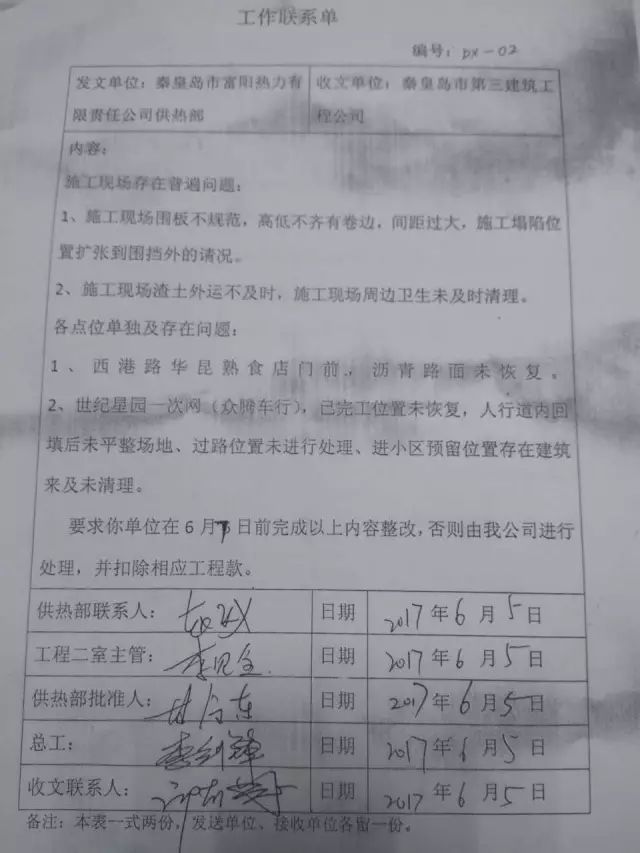 工作联系单
编号：DX-02
发文单位：秦皇岛市富阳热力有 收文单位：秦皇岛市第三建筑工
限责任公司供热部 程公司
内容：
施工现场存在普遍问题：
1、施工现场围板不规范，高低不齐有卷边，间距过大，施工塌陷位
置扩张到围挡外的请况。
2、施工现场渣土外运不及时，施工现场周边卫生未及时清理。
各点位单独及存在问题：
1、西港路华昆熟食店门前，沥青路面未恢复。
2、世纪星园一次网（众腾车行），已完工位置未恢复，人行道内回
填后未平整场地、过路位置未进行处理、进小区预留位置存在建筑
来及未清理。
要求你单位在6月 日前完成以上内容整改，否则由我公司进行
处理，并扣除相应工程款。
供热部联系人： 日期 2017年6月5日
工程二室主管： 日期 2017年6月5日
供热部批准人： 日期 2017年6月5日
总工： 日期 2017年6月5日
收文联系人： 日期 2017年6月5日
备注：本表一式两份，发送单位、接收单位各留一份。